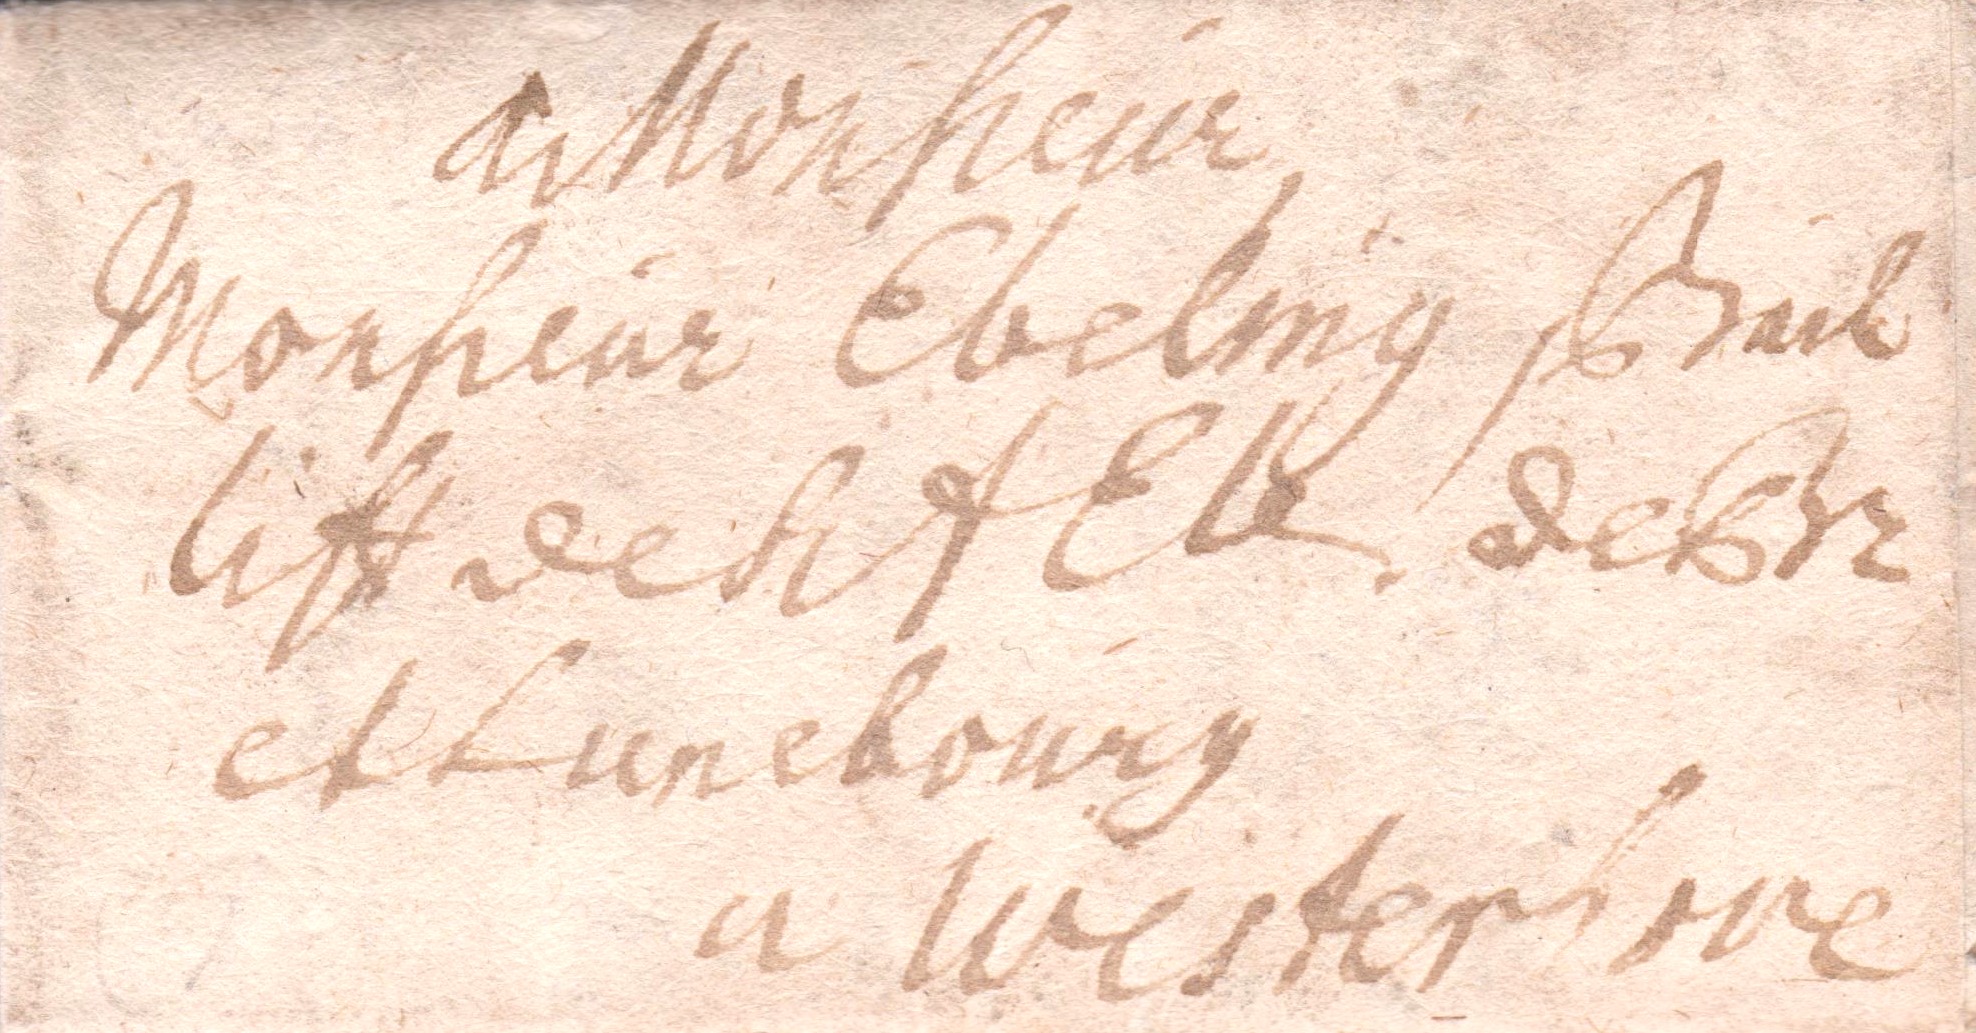 A Monsieur
Monsieur Ebeling Bail
lift de S A Ell. de Br
et Lunebourg
a Westerhove